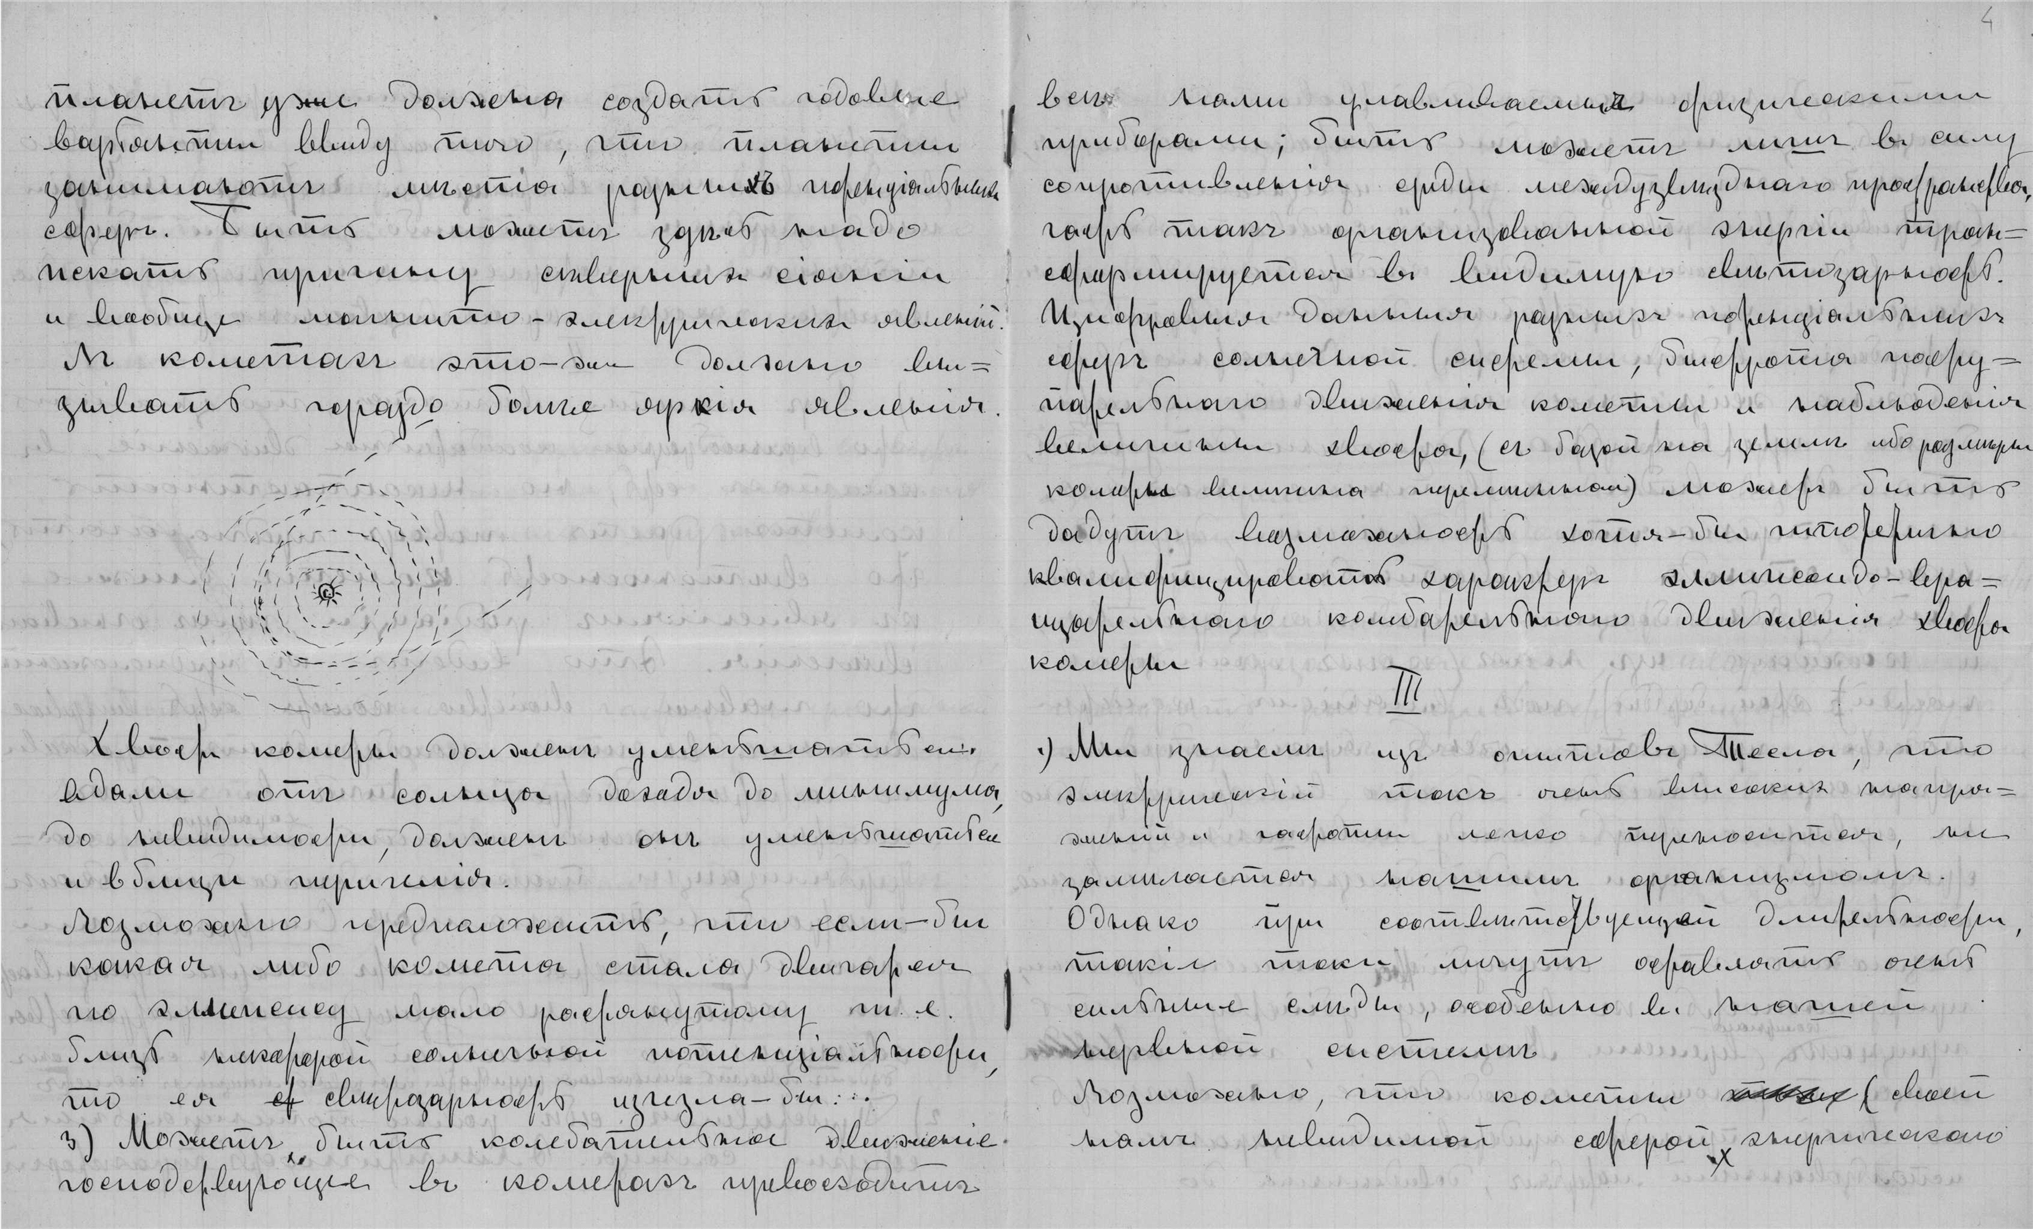 4
планетъ уже должна создать годовые
варьянты ввиду того, что планеты
занимаютъ мѣста разныхъ потенціальныхъ
сферъ. Быть можетъ здѣсь надо
искать причину сѣверныхъ сіяній
и вообще магнито-электрическихъ явленій.
Въ кометахъ это-же должно вы=
зывать гораздо болѣе яркія явленія.
Хвостъ кометы долженъ уменьшаться
вдали отъ солнца доходя до минимума,
до невидимости, долженъ онъ уменьшаться
и вблизи перигелія.
Возможно предположить, что если-бы
какая либо комета стала двигаться
по эллипсису мало растянутому т. е.
близъ некоторой солнечной потенціальности,
то ея свѣтозарность изчезла-бы...
3) Можетъ быть колебательное движеніе
господствующее въ кометахъ превосходитъ
всѣ нами улавливаемыя физическими
приборами; быть можетъ лишь въ силу
сопротивленія среды междузвѣзднаго пространства,
часть такъ организованной энергіи транс=
сформируется въ видимую свѣтозарность.
Цифровыя данныя разныхъ потенціальныхъ
сферъ солнечной системы, быстрота посту=
пательнаго движенія кометы и наблюденія
величины хвоста, (съ базой на землѣ ибо размѣры
кометы величина перемѣнная) можетъ быть
дадутъ возможность хотя-бы гипотетично
квалифицировать характеръ эллипсоидо-вра=
щательнаго колебательнаго движенія хвоста
кометы
III
1) Мы знаемъ изъ опытовъ Тесла, что
электрическій токъ очень высокихъ напря=
женій и частоты легко переносится, не
замѣчается нашимъ организмомъ.
Однако при соотвѣтствующей длительности,
такіе токи могутъ оставлять очень
сильные слѣды, особенно въ нашей
нервной системѣ
Возможно, что кометы (своей
намъ невидимой сферой х энергическаго